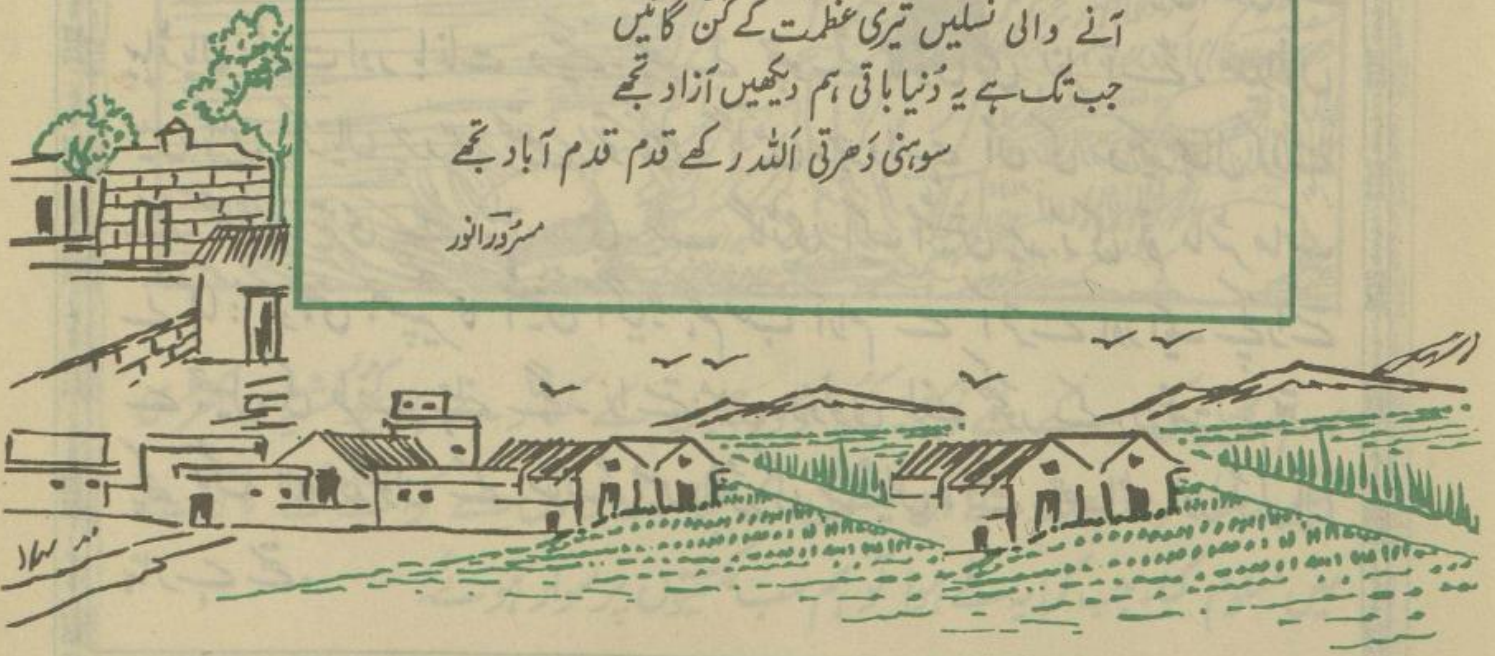 آنے والی نسلیں تیری عظمت کے گُن گائیں
جب تک ہے یہ دُنیا باقی ہم دیکھیں آزاد تجھے
سوہنی دَھرتی اَللہ رکھے قدم قدم آباد تجھے
مسرُور انور